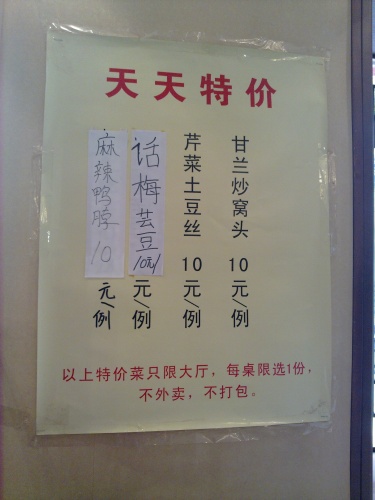 天天特价
甘兰炒窝头 10元/例
芹菜土豆丝 10元/例
话梅芸豆 10元/元/例
麻辣鸭脖 10元/例
以上特价菜只限大厅，每桌限选1份，
不外卖，不打包。